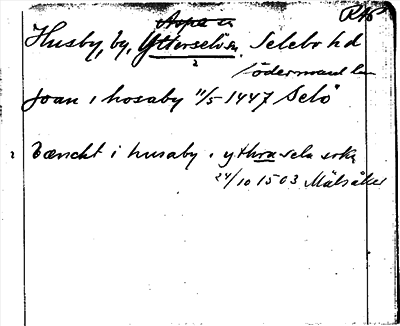 Aspa
Husby, by, Ytterselö sn, Selebo hd
2
Södermanl. län
Joan i hosaby 11/5 1447 Selö
2 bænckt i husaby i ythra sela sokn
24/10 1503 Mälsåker